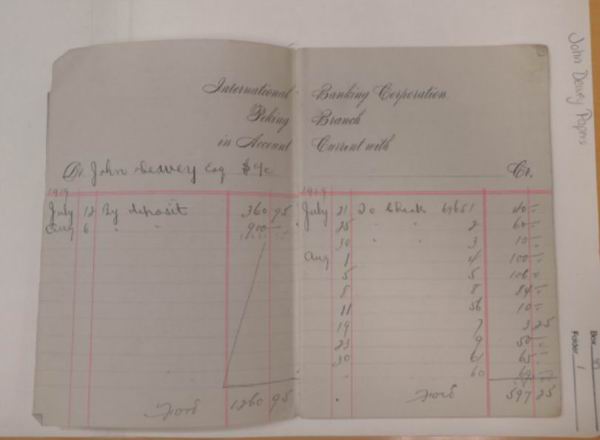 John Dewey Papers
International Banking Corporation
Peking Branch
in Account Current with
Dr. John Dewey Esq $ a/c Cr.
1919 1919
July 12 By deposit 360 95 July 21 To Check 69651 40 =
Aug 6 " " 900 = 25 " " 2 60 =
30 " " 3 10 =
Aug 1 4 100 =
5 5 106 =
8 8 84 =
11 56 10 =
19 7 3 25
23 9 50 =
30 61 65 =
" 60 69 =
Ford 1260 95 Ford 597 25
Box
Folder 1